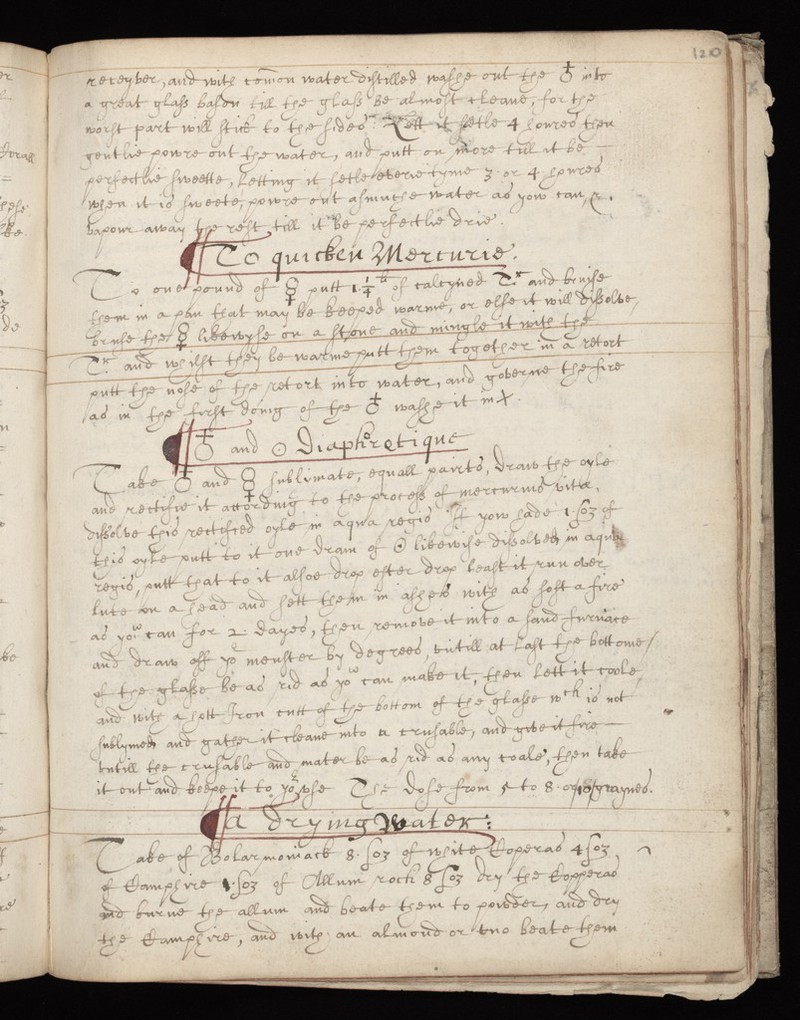 120
receyver, and with com̄on water distilled washe out the ♁ into
a great glass bason till the glass be almost cleane, for the
worst part will stick to the sides. Lett it setle 4 houres then
gentlie powre out the water, and putt on more till it be
perfectlie sweette, Letting it setle everie tyme 3 or 4 houres
when it is sweete, powre out asmuche water as yow can, &.
vapour away the rest till it be perfectlie drie.
To quicken Mercurie.
To one pound of ☿ putt 1 1/4 lb of calcyned and bruise
them in a pan that may be keeped warme, or else it will dissolve,
bruse the ☿ likewyse on a stone and mingle it with the
and whilst they be warme putt them together in a retort
putt the nose of the retort into water, and governe the fire
as in the first doing of the ♁ washe it in
♁ and ☉ Diaphretique
Take ♁ and ☿ sublymate, equall pairts, draw the oyle
and rectifie it according to the process of mercurius vitæ,
dissolve this rectifced oyle in aqua regis If yow hade 1 ℥ of
this oyle putt to it one dram of ☉ likewise dissolved in aqua
regis, putt that to it alsoe drop efter drop least it run over
lute on a head and sett them in ashes with as soft a fire
as yow can for 2 dayes, then remove it into a sand furnace
and draw off yor menster by degrees, untill at last the bottome
of the glasse be as rid as yow can make it, then lett it coole,
and with a hott Iron cutt of the bottom of the glasse wch is not
sublymed and gather it cleane into a crusable, and give it fire
untill the crusable and mater be as rid as any coale, then take
it out and keepe it to yor vse The dose from 5 to 8 or 10 graynes.
A drying Water:
Take of Bolarmoniack 8 ℥ of white Coperas 4 ℥
of Camphire 1 ℥ of Allum rock 8 ℥ dry the Copperas
and burne the allum and beate them to powder, and dry
the Camphire, and with an almond or tuo beate them